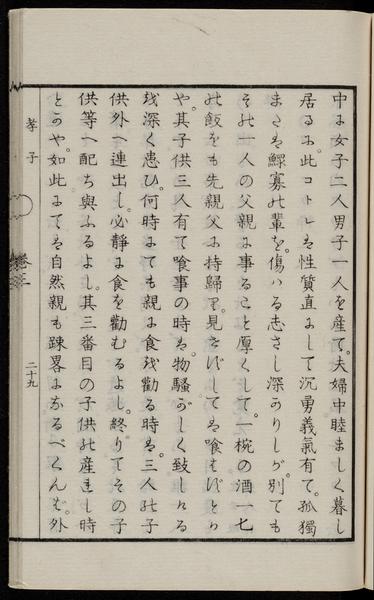 中に女子二人男子一人を産て。夫婦中睦ましく暮し
居るに。此コトレは性質直にして沉勇義氣有て。孤獨
または鰥寡の輩を。傷はる志さし深かりしが。別ても
その一人の父親に事ること厚くして。一椀の酒一七
の飯をも先親父に持歸り。見せずしては喰はずとか
や。其子供三人有て喰事の時は。物騷がしく致しける
を深く患ひ。何時にても親に食を勸る時は。三人の子
供外へ連出し。必靜に食を勸むるよし。終りてその子
供等へ配ち與ふるよし。其三番目の子供の産れし時
とかや。如此にては自然親も踈畧になるべくんば。外
孝子
卷三
二十九